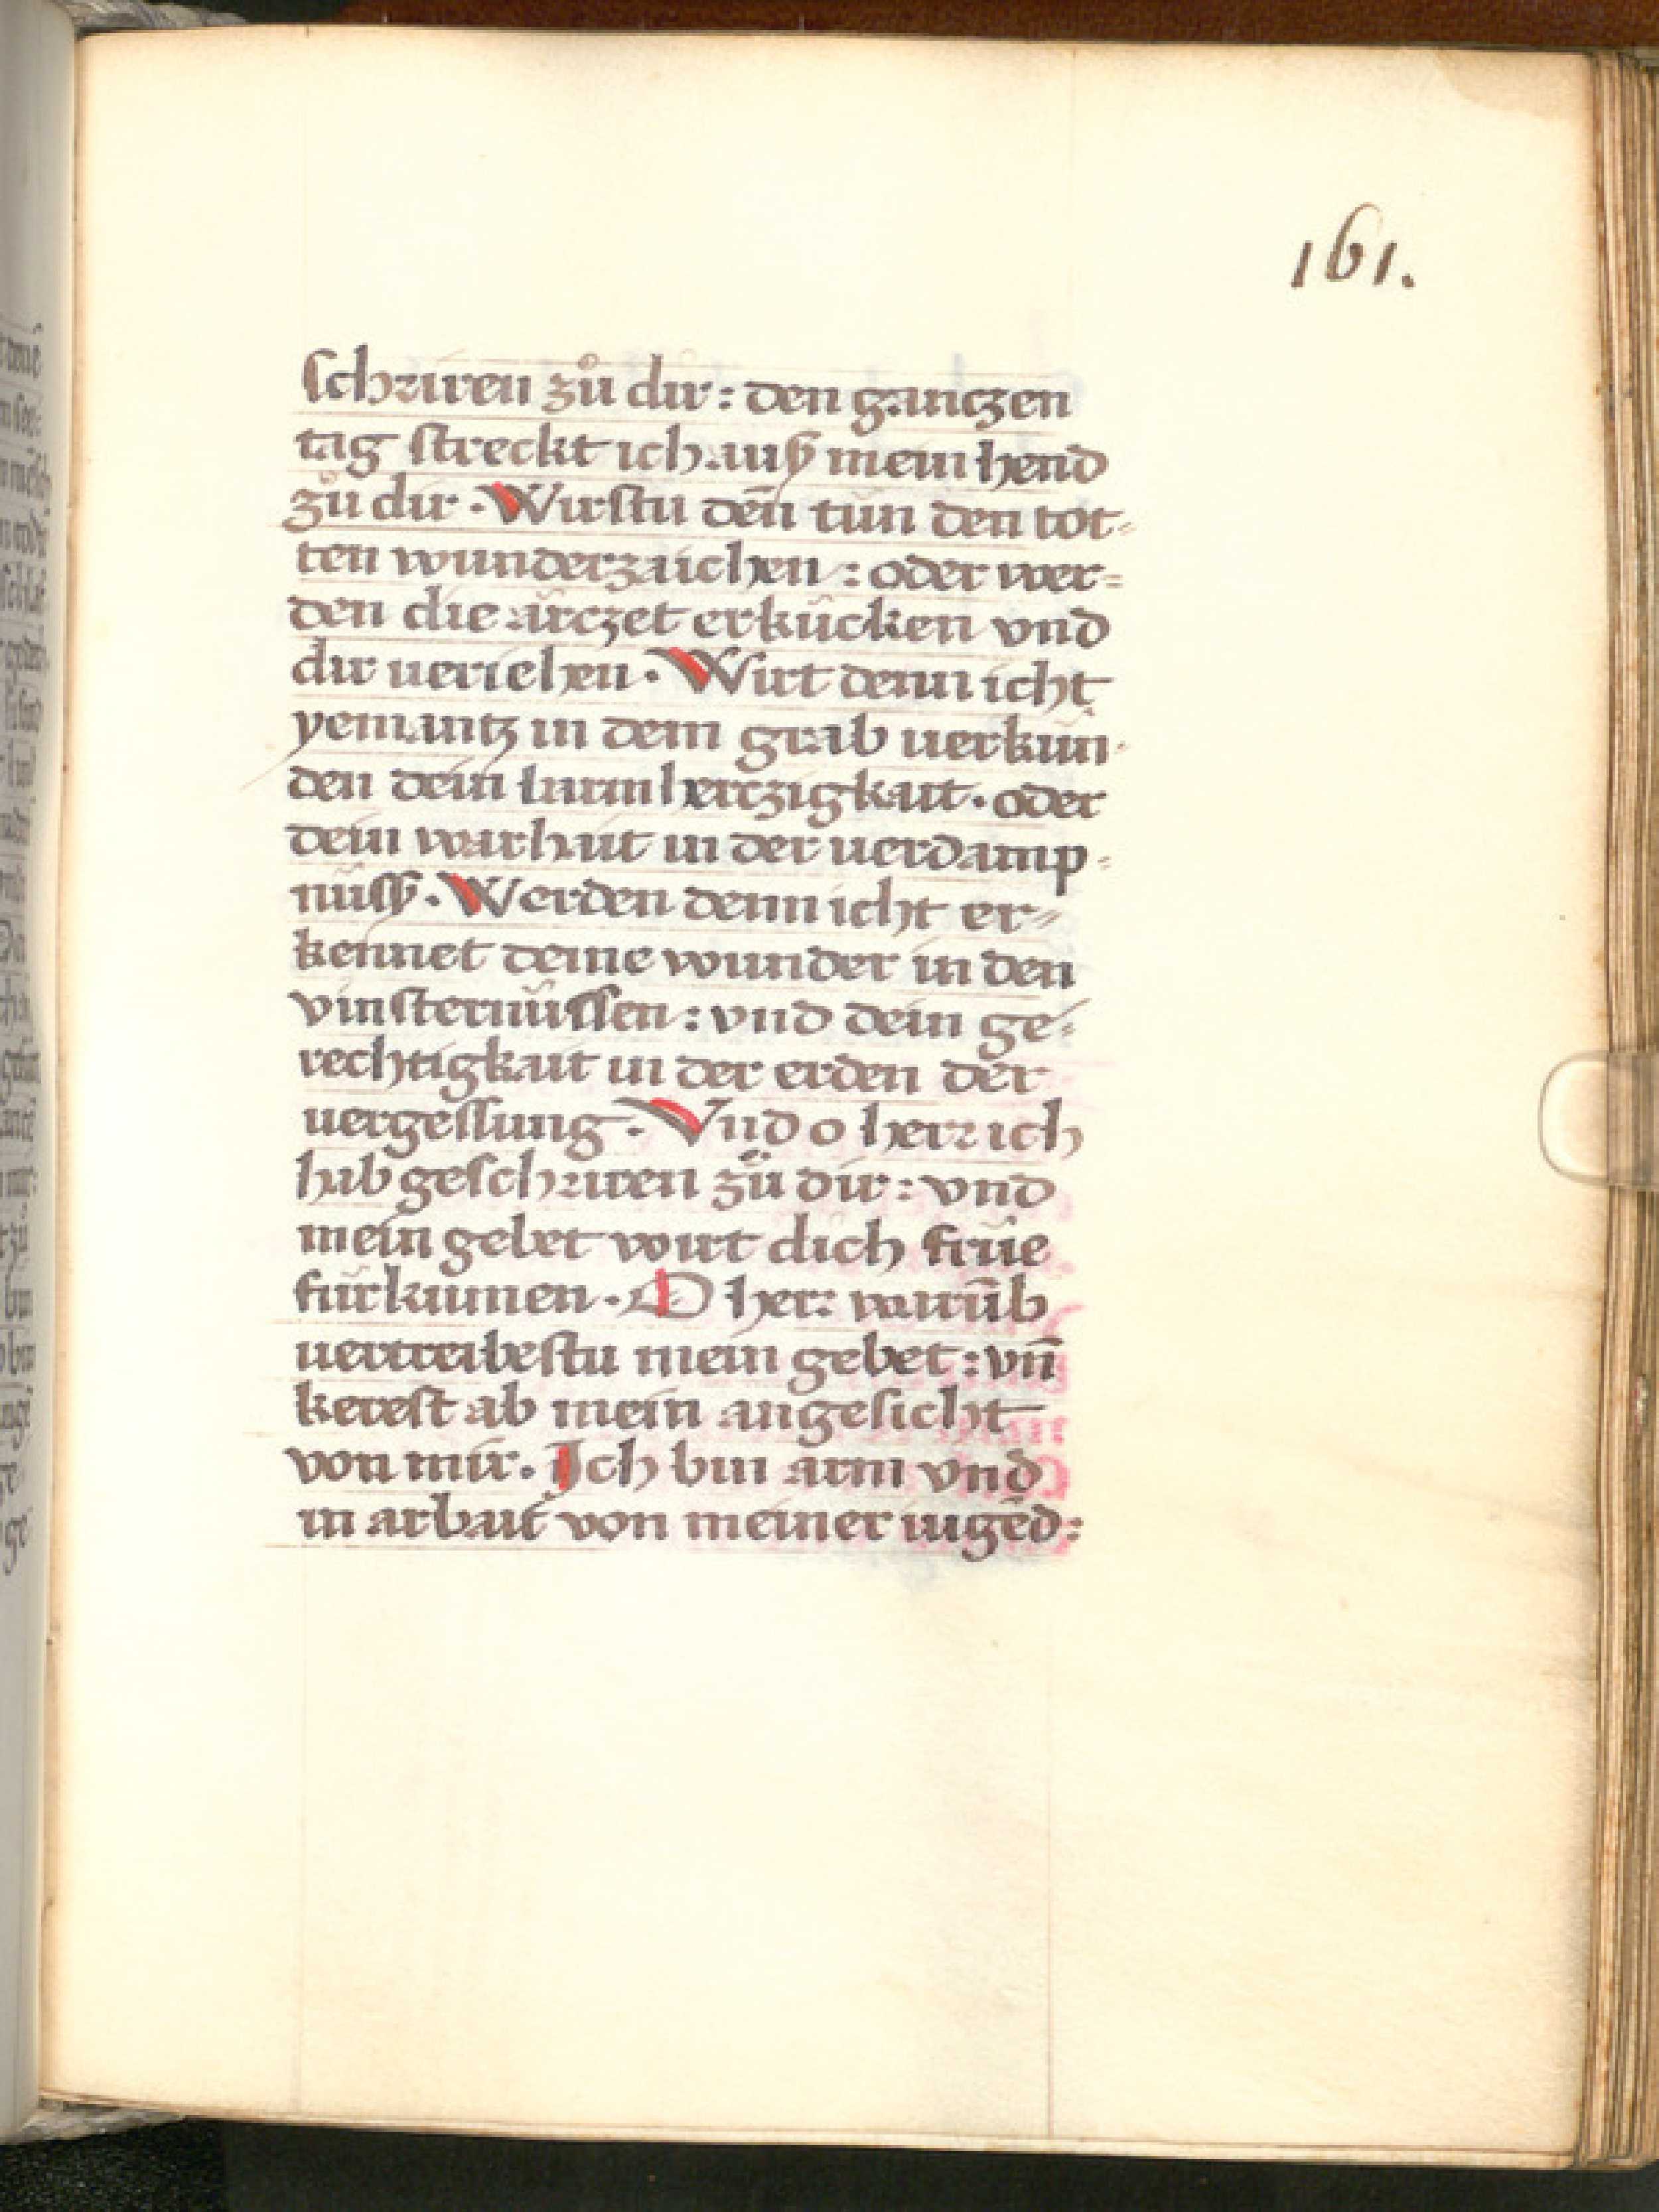 161.
schriren zů dir : den ganczen
tag streckt ich auß mein hend
zů dir · Wirstu deñ tůn den tot-
ten wunderzaichen : oder wer-
den die ärczet erkücken vnd
dir ueriehen · Wirt denn icht
yemantz in dem grab uerkün-
den dein barmherczigkait · oder
dein warhait in der uerdamp-
nüsß · Werden denn icht er-
kennet deine wunder in den
vinsternüssen : vnd dein ge-
rechtigkait in der erden der
uergessung · Vnd o herr ich
hab geschriren zů dir : vnd
mein gebet wirt dich früe
fürkumen · O herr warūb
uertreibestu mein gebet : vn̄
kerest ab mein angesicht
von mir · Ich bin arm vnd
in arbait von meiner iugēd :